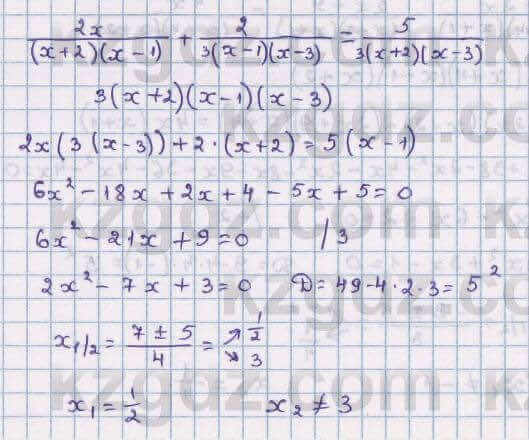 2x/((x+2)(x-1)) + 2/(3(x-1)(x-3)) = 5/(3(x+2)(x-3))
3(x+2)(x-1)(x-3)
2x(3(x-3))+2·(x+2)=5(x-1)
6x²-18x+2x+4-5x+5=0
6x²-21x+9=0 /3
2x²-7x+3=0 D=49-4·2·3=5²
x₁/₂= (7±5)/4 = ↗ 1/2 ↘ 3
x₁=1/2 x₂≠3
kzgdz.com